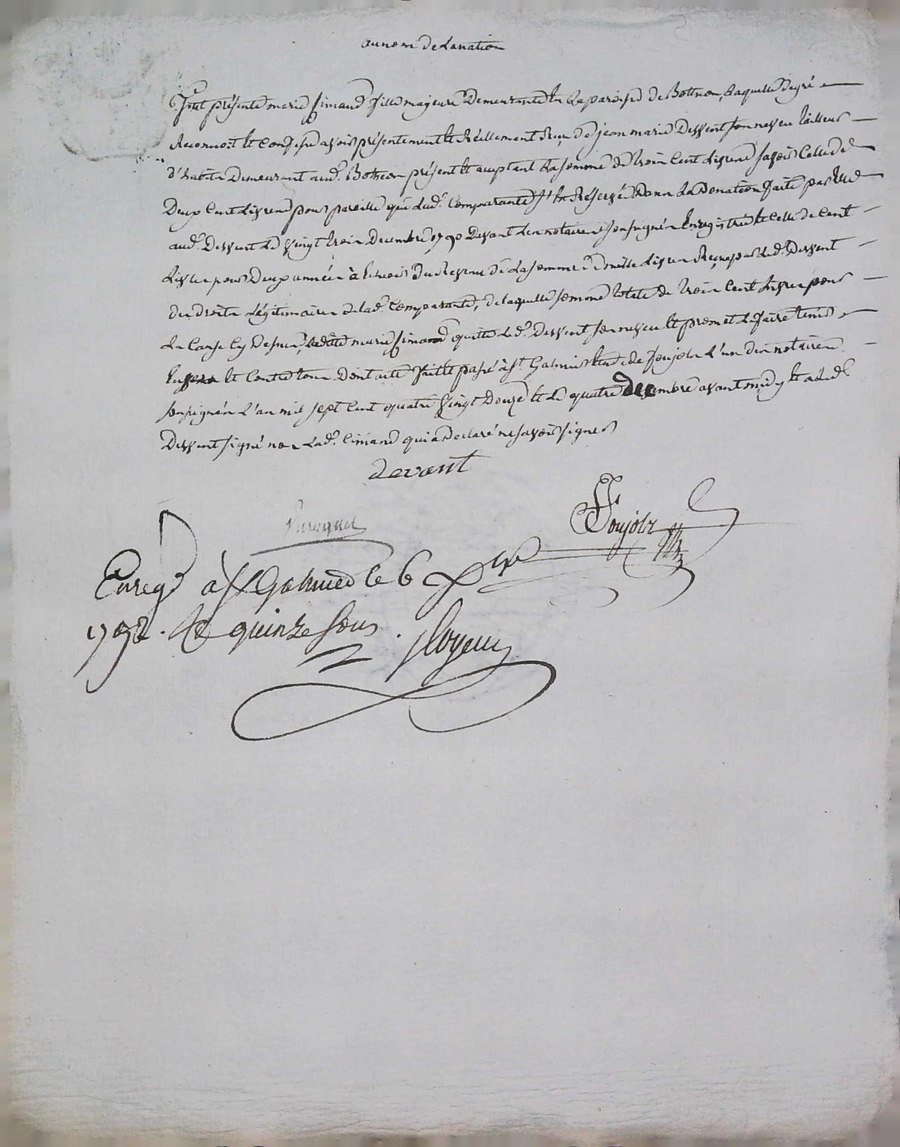 au nom de la nation
fut présente marie Simand fille majeure Demeurante en La paroisse de Botheon, Laquelle De gré
Reconnoit et Confesse avoir présentement et Réellement Reçu de jean marie Dessent son neveu tailleur
d'habits Demeurant aud. Botheon présent et acceptant La somme de trois Cent Livres savoir Celle de
Deux Cent Livres pour pareille que Lad. Comparante s'est Réservée Dans La Donation faite par Elle
aud. Dessent Le vingt trois Decembre 1790 Devant Les notaires soussignés Enregistrée et Celle de Cent
Livres pour Deux années à du Revenu de La somme de mille Livres Reçue par led. Dessent
des droits Légitimaires de lad. Comparante, de laquelle somme totale de trois Cent Livres pour
La Cause Cy Dessus, ladite marie Simand quitte Led. Dessent son neveu et promet Le faire tenir
quitte Envers et Contre tous Dont acte fait et passé à St. Galmier Etude de Poujolz L'un des notaires
soussignés L'an mil sept Cent quatre vingt Douze et Le quatre Decembre avant midy et a Led.
Dessent signé non Lad. Simand qui a Declaré ne savoir signer
devent
Poujolz
Enregé à St Galmier le 6 Xbre
1792. Rç quinze sous.